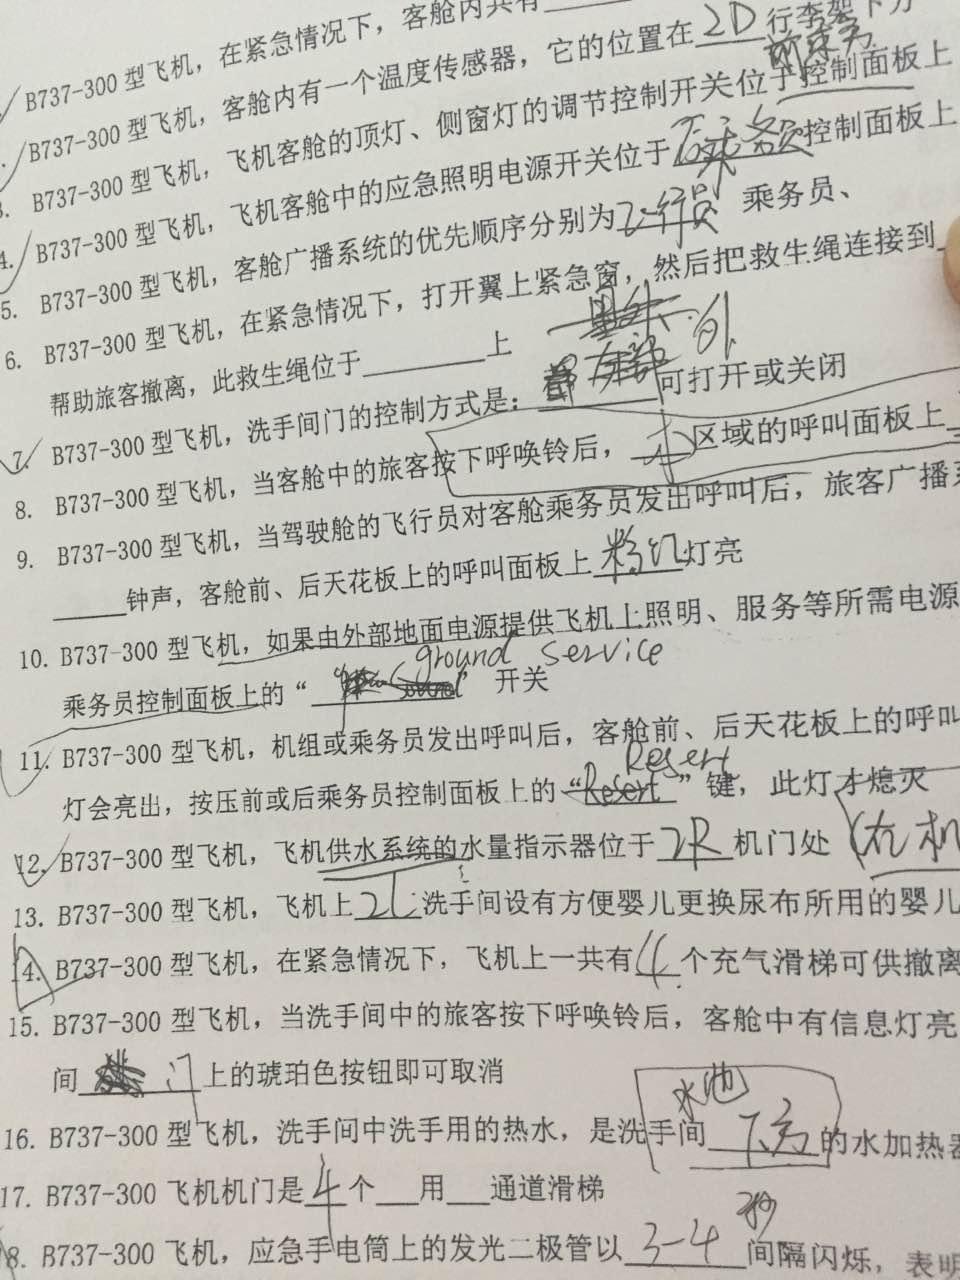 B737-300 型飞机，在紧急情况下，客舱内共有
B737-300 型飞机，客舱内有一个温度传感器，它的位置在 2D 行李架下方
前乘务
3. B737-300 型飞机，飞机客舱的顶灯、侧窗灯的调节控制开关位于控制面板上
4. B737-300 型飞机，飞机客舱中的应急照明电源开关位于后乘务员控制面板上
5. B737-300 型飞机，客舱广播系统的优先顺序分别为飞行员 乘务员、
6. B737-300 型飞机，在紧急情况下，打开翼上紧急窗，然后把救生绳连接到
帮助旅客撤离，此救生绳位于________上
7. B737-300 型飞机，洗手间门的控制方式是：内外可打开或关闭
8. B737-300 型飞机，当客舱中的旅客按下呼唤铃后，本区域的呼叫面板上
9. B737-300 型飞机，当驾驶舱的飞行员对客舱乘务员发出呼叫后，旅客广播系
_____钟声，客舱前、后天花板上的呼叫面板上粉红灯亮
10. B737-300 型飞机，如果由外部地面电源提供飞机上照明、服务等所需电源
ground service
乘务员控制面板上的“ ” 开关
11. B737-300 型飞机，机组或乘务员发出呼叫后，客舱前、后天花板上的呼叫
Resert
灯会亮出，按压前或后乘务员控制面板上的“Resert”键，此灯才熄灭
12. B737-300 型飞机，飞机供水系统的水量指示器位于 2R 机门处（在机
13. B737-300 型飞机，飞机上 2L 洗手间设有方便婴儿更换尿布所用的婴儿
14. B737-300 型飞机，在紧急情况下，飞机上一共有 4 个充气滑梯可供撤离
15. B737-300 型飞机，当洗手间中的旅客按下呼唤铃后，客舱中有信息灯亮
间 门 上的琥珀色按钮即可取消
水池
16. B737-300 型飞机，洗手间中洗手用的热水，是洗手间下方的水加热器
17. B737-300 飞机机门是 4 个___用___通道滑梯
秒
18. B737-300 飞机，应急手电筒上的发光二极管以 3-4 间隔闪烁，表明